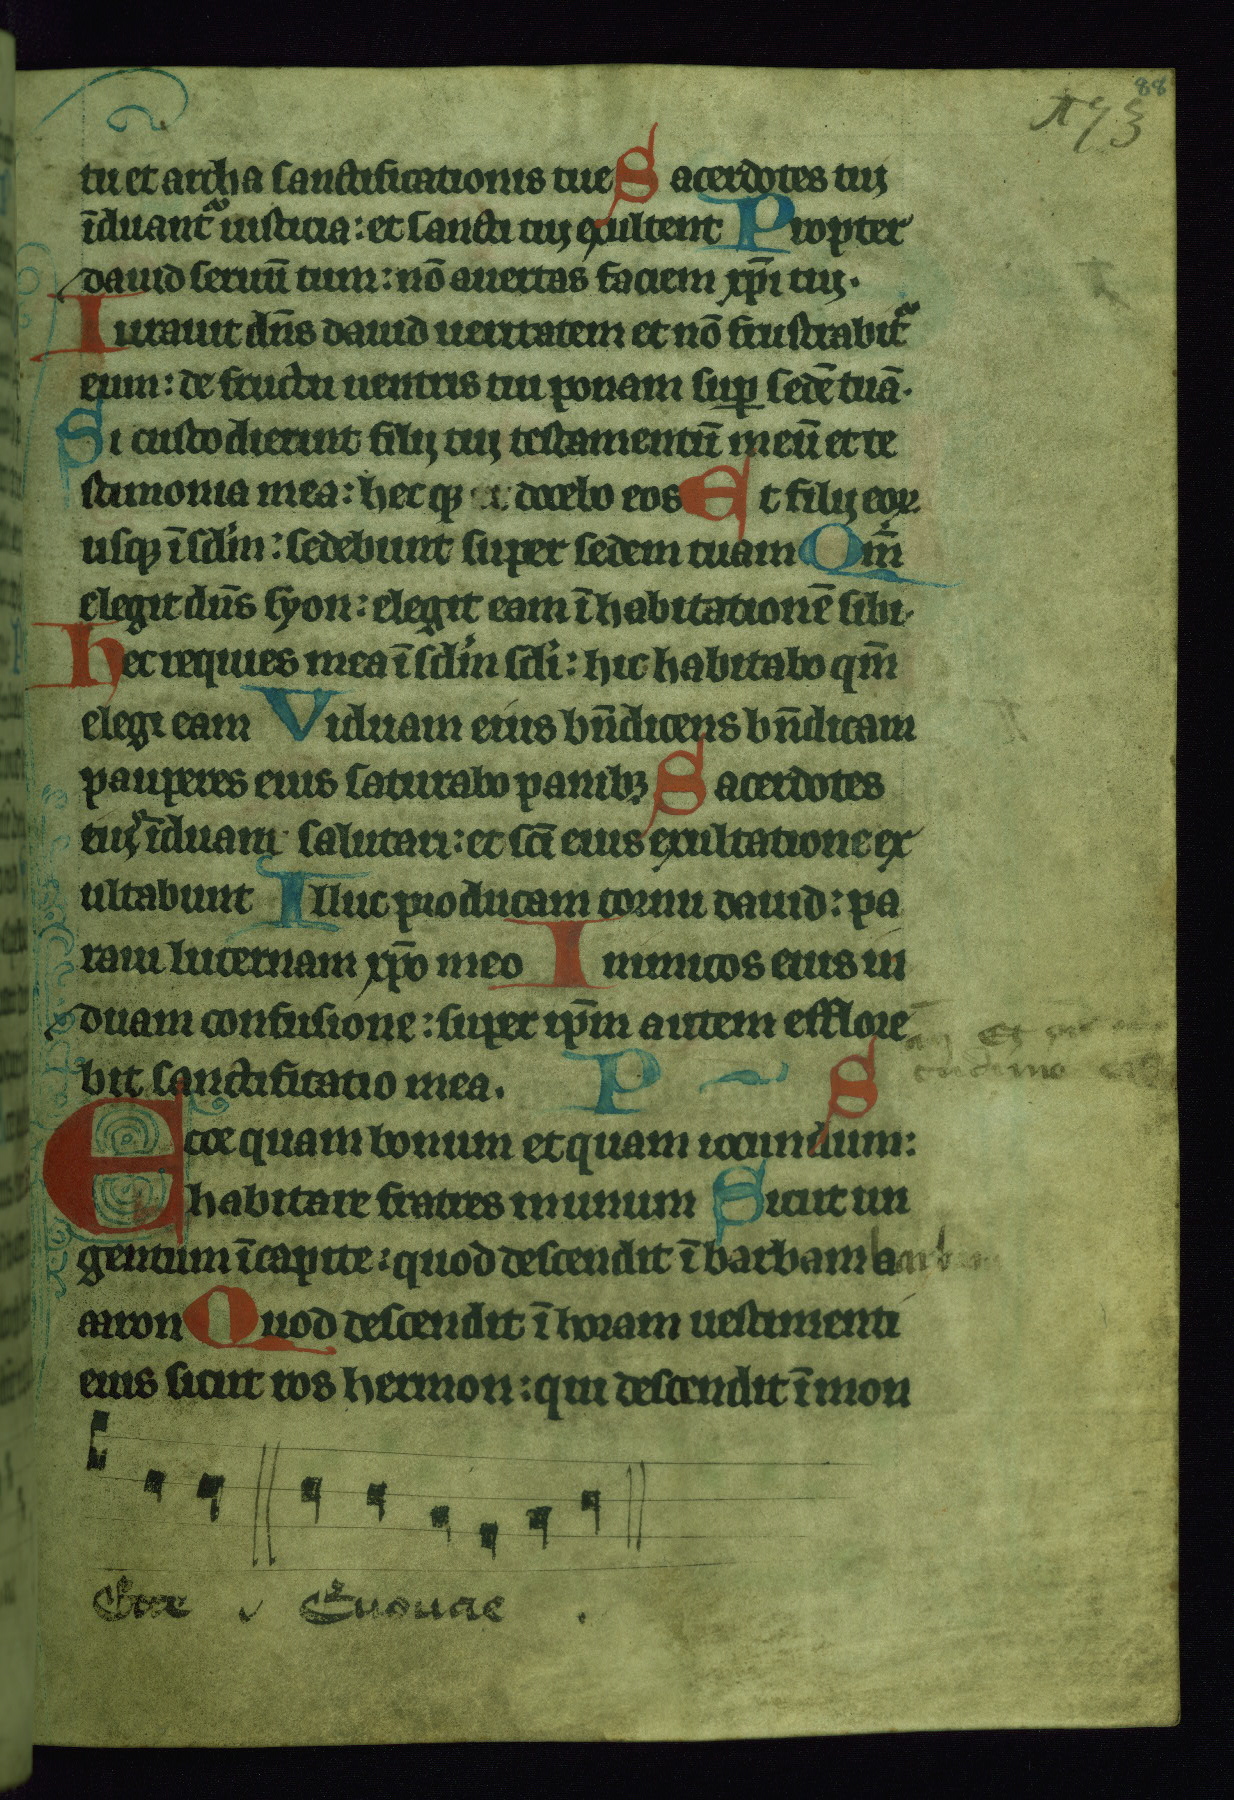 88
193
tu et archa sanctificationis tue Sacerdotes tuj
īduant᷑ iusticia: et sancti tuj exultent Propter
dauid seruū tuum: nō auertas faciem xp̄i tuj.
Iurauit dn̄s dauid ueritatem et nō frustrabit᷑
eum: de fructu uentris tui ponam suꝑ sedē tuā.
Si custodierint filij tuj testamentū meū et te
stimonia mea: hec qꝫ docebo eos Et filij eoꝝ
usqꝫ ī sclm: sedebunt super sedem tuam Qm̄
elegit dn̄s syon: elegit eam ī habitationē sibi.
Hec requies mea ī sclm scli: hic habitabo qm̄
elegi eam Viduam eius bn̄dicens bn̄dicam
pauperes eius saturabo panibꝫ Sacerdotes
tuj īduam salutari: et sc̄i eius exultatione ex
ultabunt Illuc producam cornu dauid: pa
raui lucernam xp̄o meo Inimicos eius in
duam confusione: super ip̄m autem efflore
bit sanctificatio mea. P S
Ecce quam bonum et quam iocundum:
habitare fratres in unum Sicut un
gentum ī capite: quod descendit ī barbam
aaron Quod descendit ī horam uestimenti
eius sicut ros hermon: qui descendit ī mon
Ecce Euouae